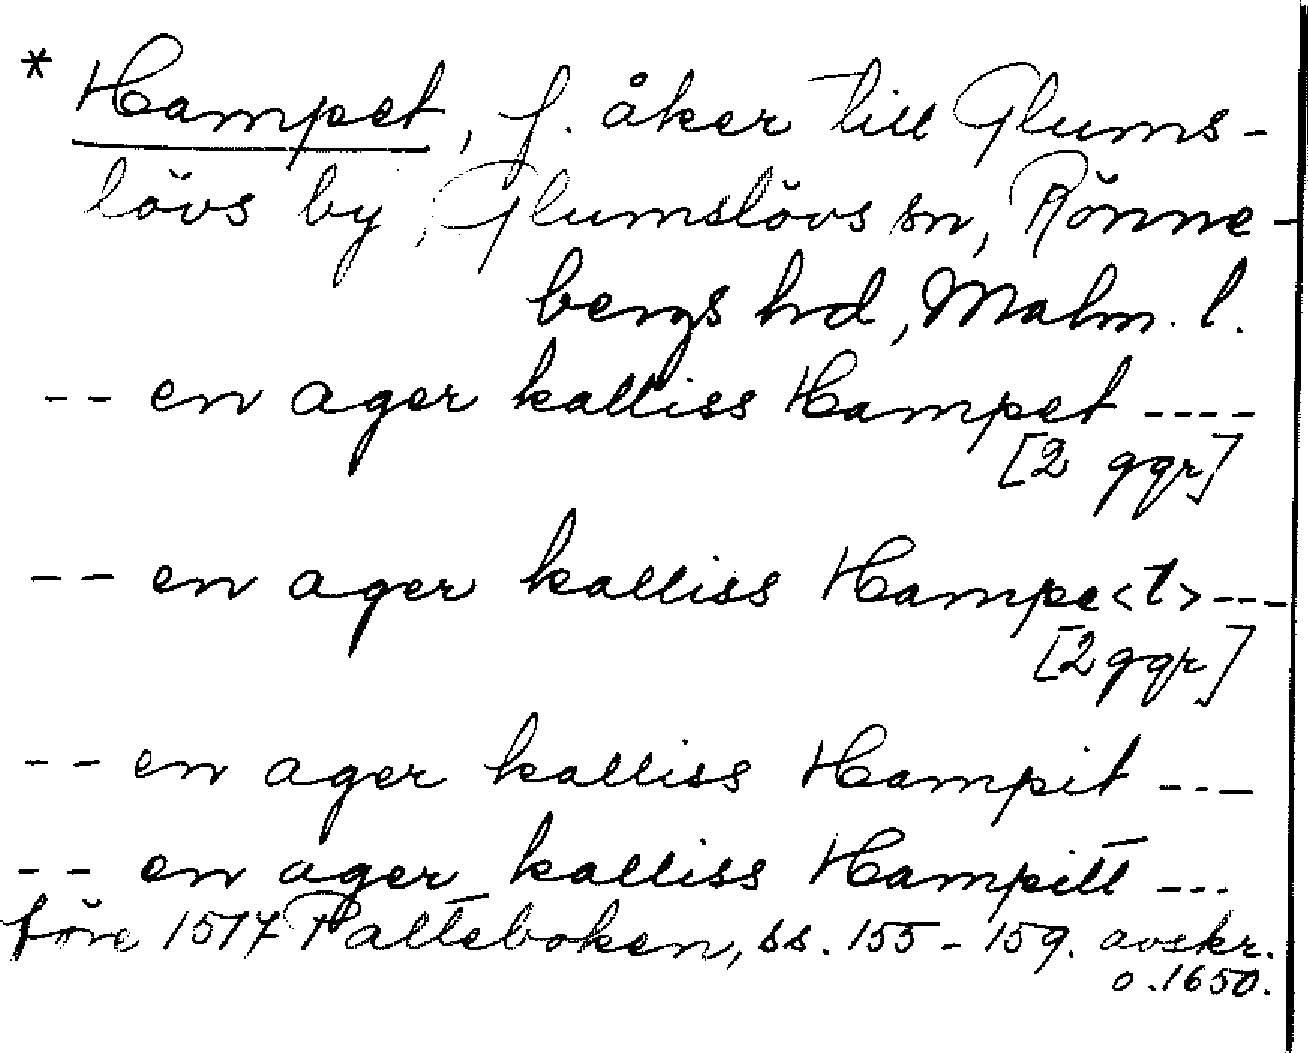 * Hampet, f. åker till Glums-
lövs by, Glumslövs sn, Rönne-
bergs hd, Malm. l.
-- en ager kalliss Hampet ----
[2 ggr]
-- en ager kalliss Hampe<t>---
[2 ggr]
-- en ager kalliss Hampit ---
-- en ager kalliss Hampitt ---
före 1517 Palteboken, ss. 155-159. avskr.
o. 1650.